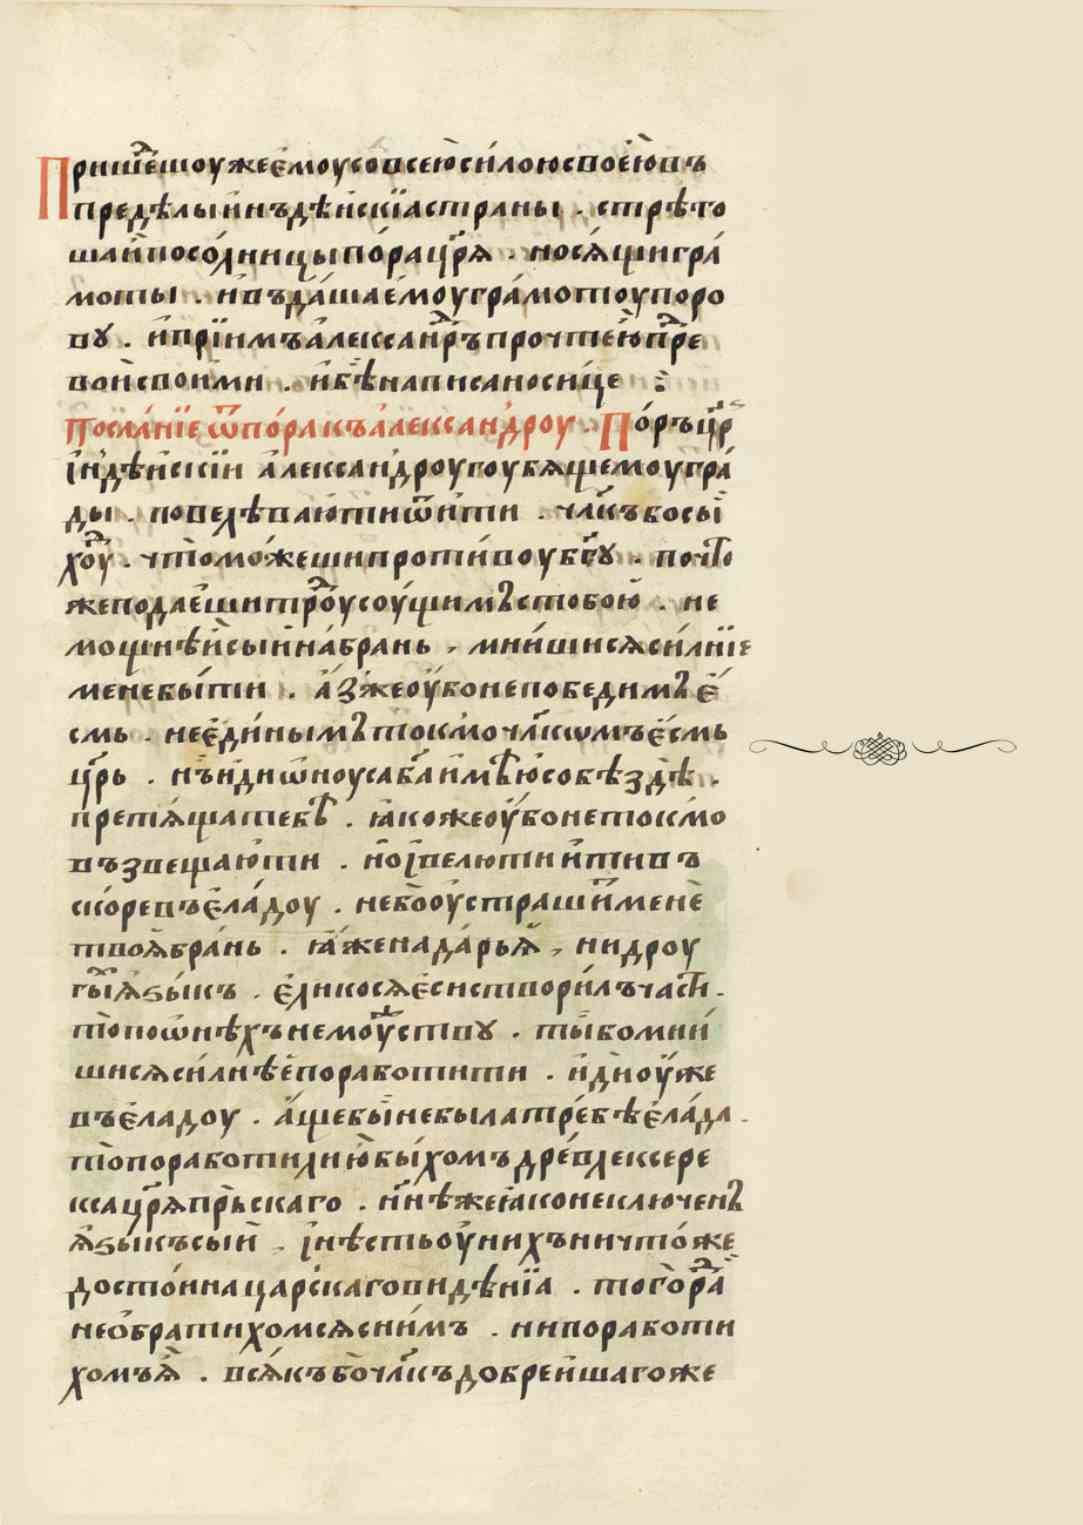 Пришедшоу же емоу со всею силою своею въ
пределы инъдѣискїа страны . стрѣто
ша и посолницы пора царя . носящи гра
моты . и въдаша емоу грамотоу поро
вꙋ . и прїимъ алексанръ прочте ю пре
вои своими . и бѣ написано сице
Посланїе ѿ пора къ александроу . Поръ црь
індѣискїи александроу гоубящемоу гра
ды . повелѣваю ти ѿити . члкъ бо сы
хоу . что можеши противоу бгꙋ . почто
же подаеши троу соущимъ с тобою . не
мощнѣи сыи на брань . мниши ся силнїе
мене быти . азже оубо непобедимъ е
смь . не единымъ токмо члкѡмъ есмь
црь . нъ и диѡноуса ба имѣю собѣ здѣ .
претяща тебѣ . ꙗкоже оубо не токмо
възвещаю ти . но і велю ти ити въ
скоре въ еладоу . не бо оустрашит мене
твоя брань . ꙗже на дарья , ни дроу
гыя ѕыкъ . елико ся еси створилъ части .
то по ѡнѣхъ немоуствꙋ . ты бо мни
ши ся силнѣе поработити . иди оуже
въ еладоу . аще бы не была требѣ елада .
то поработили ю быхомъ древле ксере
кса царя прьскаго . ннѣ же ꙗко неключенъ
яѕыкъ сыи , і нѣсть оу нихъ ничтоже
достоина царскаго видѣнїа . того ра
не обратихомся с нимъ . ни поработи
хомъ я . всякъ бо члкъ добреишаго же